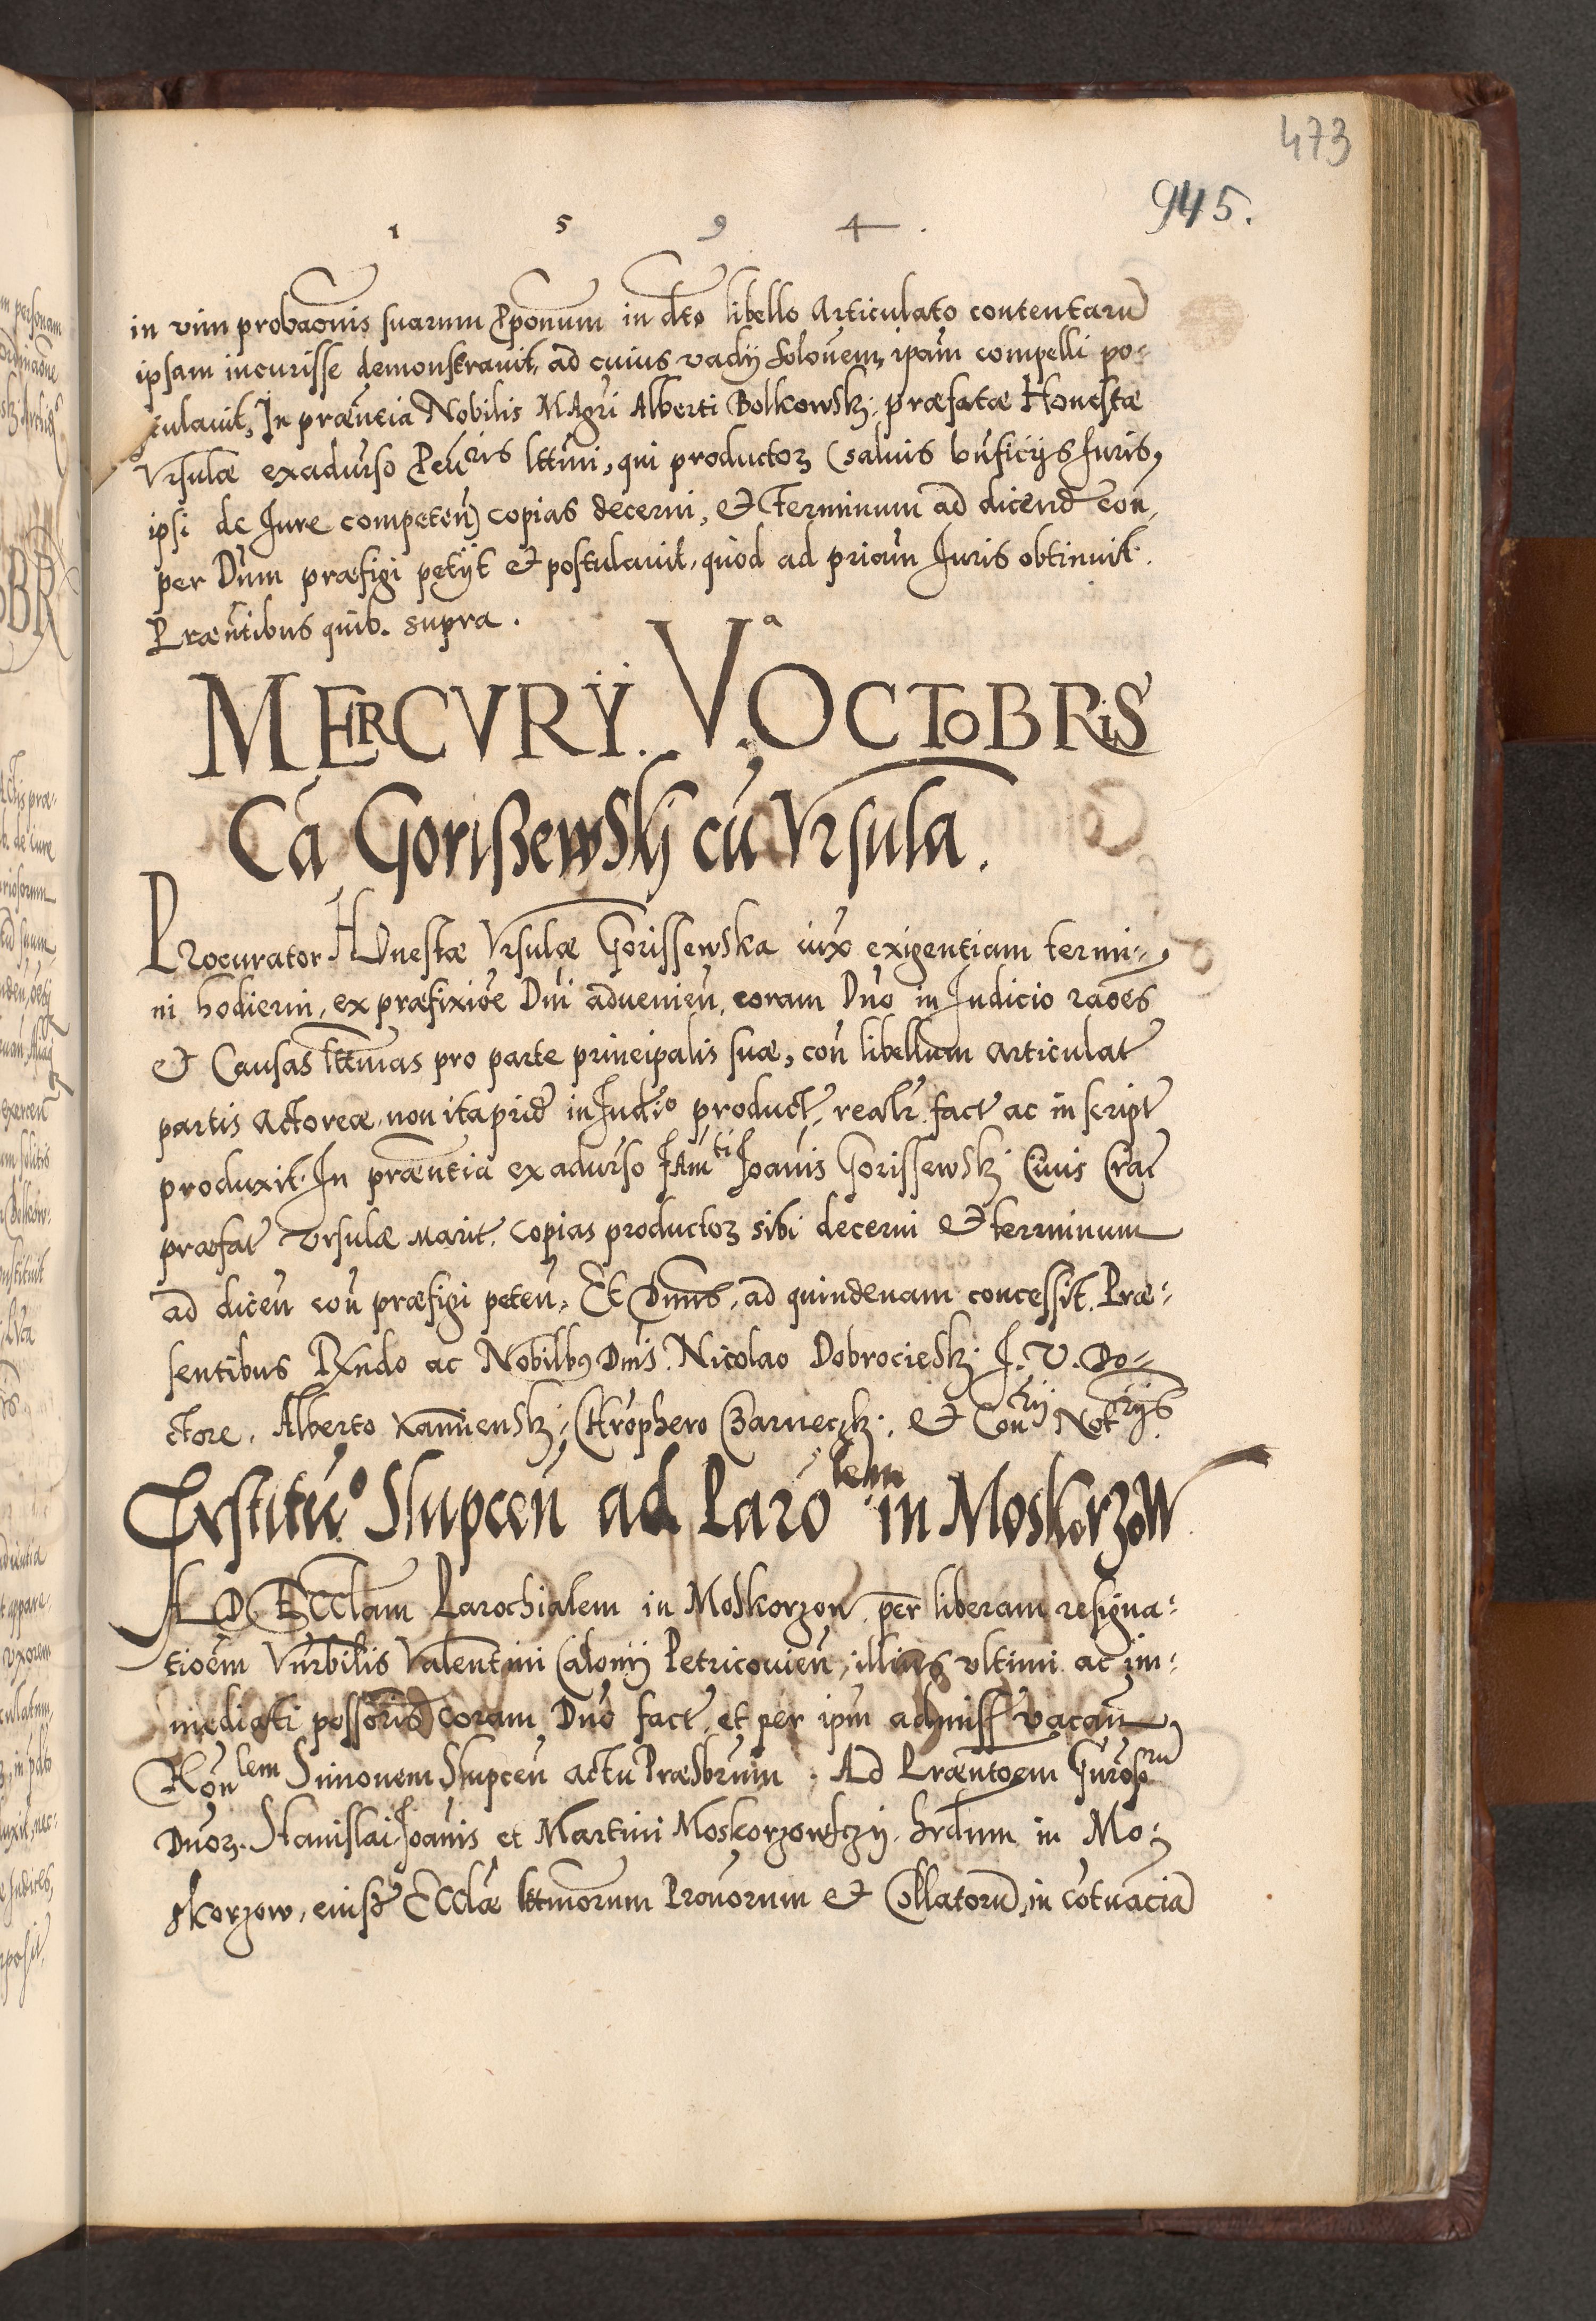 473
945.
1 5 9 4.
in vim probaōnis suarum Pponum in dto libello Articulato contentarū
ipsam incurisse demonstravit, ad cuius vadij solōuem, ipām compelli po-
stulavit, In præntia Nobilis MAgri Alberti Bolkowskj præfatæ Honestæ
Ursulæ exadurso Peuris lttimi, qui productoꝝ (salvis būficijs Iuris,
ipsi de Iure competeñ) copias decerni, et Terminum ad dicend con,
per Dūm præfigi petijt et postulavit, quod ad priam Iuris obtinuit.
Præntibus quib. supra.
MERCVRŸ. Vᵃ. OCTOBRIS
Cā Gorißewskj cū Vrsula.
Procurator HOnestæ Vrsulæ Gorissewska iux exigentiam termi-
ni hodierni, ex præfixiōe Dni advenieñ, coram Dno in Iudicio raōes
et Causas lttimas pro parte principalis suæ, coñ libellum articulat
partis Actoreæ, non itaprid in Iudīo product, realr fact ac in script
produxit. In præntia exadurso FAmti Ioānis Gorissewskj Civis Crac
præfat Vrsulæ Marit. copias productoꝝ sibi decerni et terminum
ad diceñ coñ præfigi peteñ, Et Dnns, ad quindenam concessit. Præ-
sentibus Rndo ac Nobilbꝯ Dnis. Nicolao Dobrocieskj I. V. Do-
ctore. Alberto Kamienskj, Chrophero Czarneczkj. et Conrij Notrijs.
Institu° Slupceñ ad Parolem in Moskorzow
AD ECClam Parochialem in Moskorzow per liberam resigna-
tioēm Vnrbilis Valentini Calonij Petricovieñ, illius ultimi ac im-
mediati possoris coram Dno fact, et per ipm admiss vacañ,
Ronlem Simonem Slupceñ actu Præsbrum. Ad Præntoem Gnrosorū
Dnoꝝ. Stanislai, Ioānis et Martini Moskorzowsczij. hrdum in Mo-
skorzow, eiusd ECClæ lttimorum Pronorum et Collatorū, in cotuacia